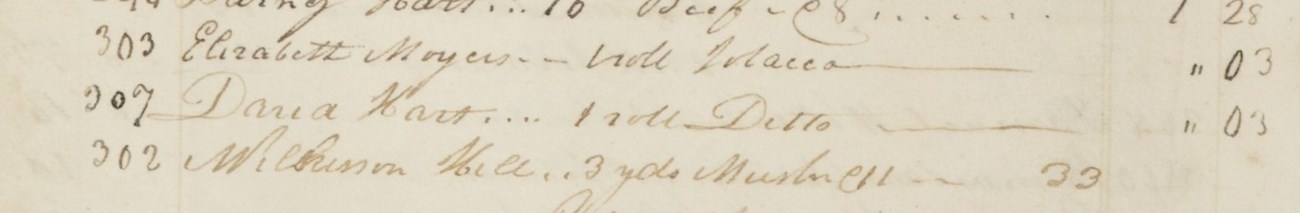 Hart... 10 Beef - @ 8 ....... 1 28
303 Elizabeth Moyers - - 1 roll Tobacco " 03
307 David Hart .... 1 roll Ditto " 03
302 Wilkinson Hill .. 3 yds Muslin @ 11 - - 33